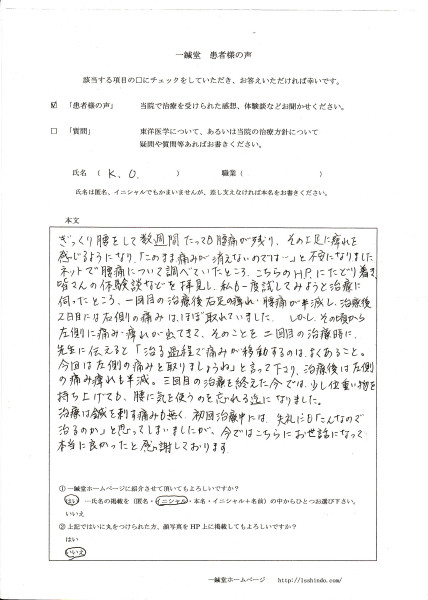 一鍼堂 患者様の声
該当する項目の□にチェックをしていただき、お答えいただければ幸いです。
☑ 「患者様の声」 当院で治療を受けられた感想、体験談などお聞かせください。
□ 「質問」 東洋医学について、あるいは当院の治療方針について
疑問や質問等あればお書きください。
氏名 （ K. O. ） 職業（ ）
氏名は匿名、イニシャルでもかまいませんが、差し支えなければ本名をお書きください。
本文
ぎっくり腰をして数週間たっても腰痛が残り、その上足に痺れを
感じるようになり、「このまま痛みが消えないのでは…」と不安になりました
ネットで腰痛について調べていたところ、こちらのH.P.にたどり着き
皆さんの体験談などを拝見し、私も一度試してみようと治療に
伺ったところ、一回目の治療後右足の痺れ・腰痛が半減し、治療後
2日目には右側の痛みはほぼ取れていました。しかし、その頃から
左側に痛み・痺れが出てきて、そのことを二回目の治療時に
先生に伝えると「治る過程で痛みが移動するのは、よくあること。
今回は左側の痛みを取りましょうね」と言って下さり、治療後は左側
の痛み痺れも半減。三回目の治療を終えた今では、少し位重い物を
持ち上げても、腰に気を使うのを忘れる迄になりました。
治療は鍼を刺す痛みも無く、初回治療中には、失礼にも「こんなので
治るのか」と思ってしまいましたが、今ではこちらにお世話になって
本当に良かったと感謝しております。
① 一鍼堂ホームページに紹介させて頂いてもよろしいですか？
はい ―氏名の掲載を（匿名・イニシャル・本名・イニシャル＋名前）の中からひとつお選び下さい。
いいえ
② 上記ではいに丸をつけられた方、顔写真をHP上に掲載してもよろしいですか？
はい
いいえ
一鍼堂ホームページ http://isshindo.com/